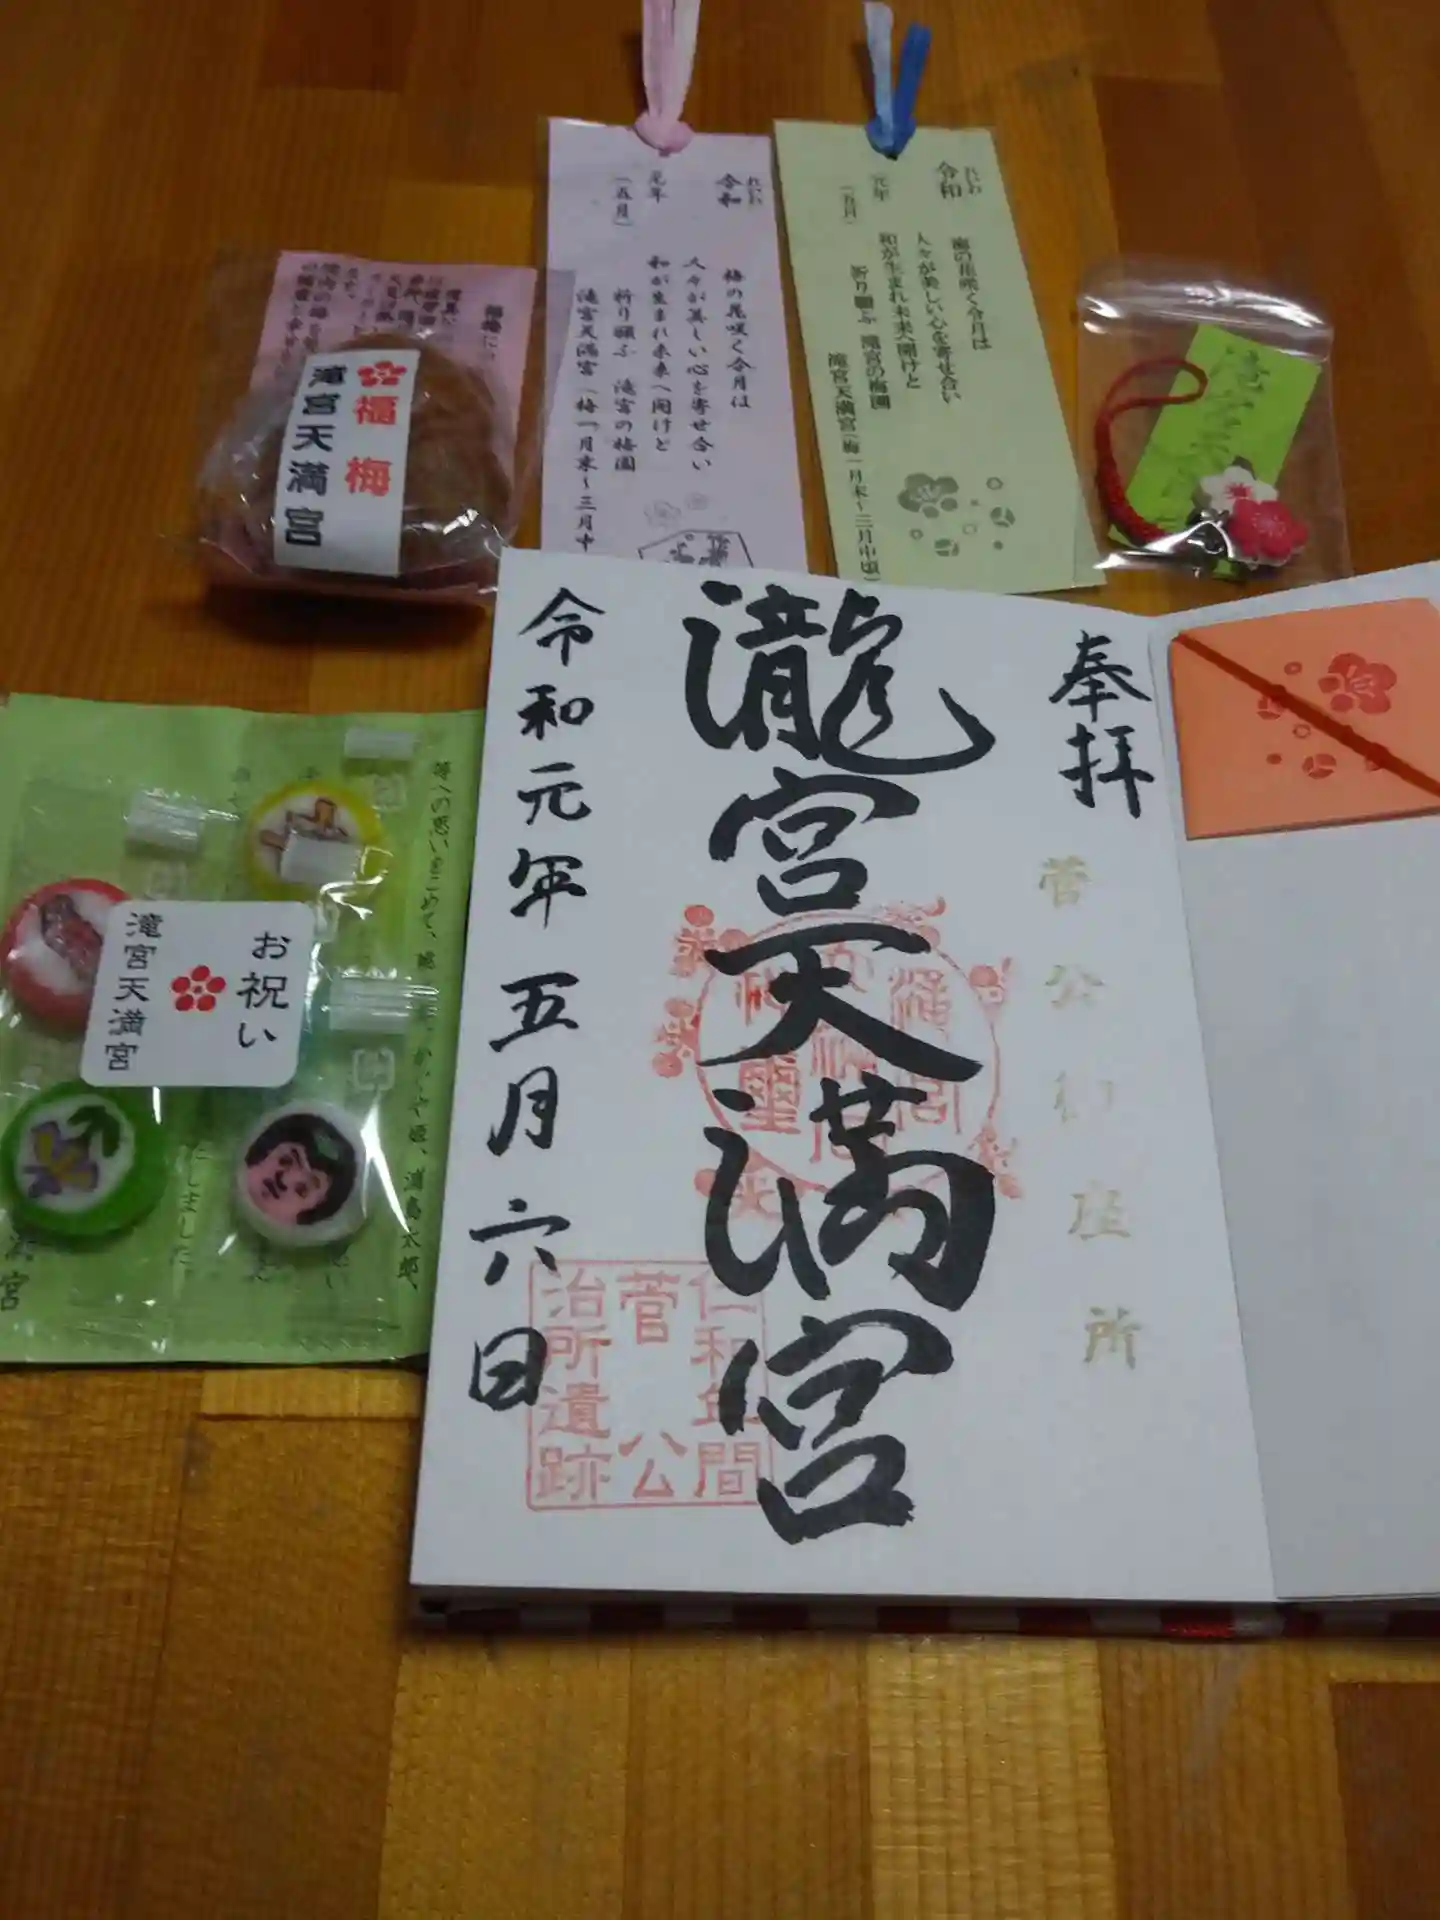 福梅
滝宮天満宮
れいわ
令和
元年
(五月)
梅の花咲く令月は
人々が美しい心を寄せ合い
和が生まれ未来へ開けと
祈り願ふ 滝宮の梅園
滝宮天満宮(梅一月末～三月中
れいわ
令和
元年
(五月)
梅の花咲く令月は
人々が美しい心を寄せ合い
和が生まれ未来へ開けと
祈り願ふ 滝宮の梅園
滝宮天満宮(梅一月末～三月中頃)
奉拝
菅公御座所
瀧宮天満宮
令和元年五月六日
仁和年間
菅公
治所遺跡
お祝い
滝宮天満宮
等への思いをこめて、
かぐや姫、浦島太郎、
たしました